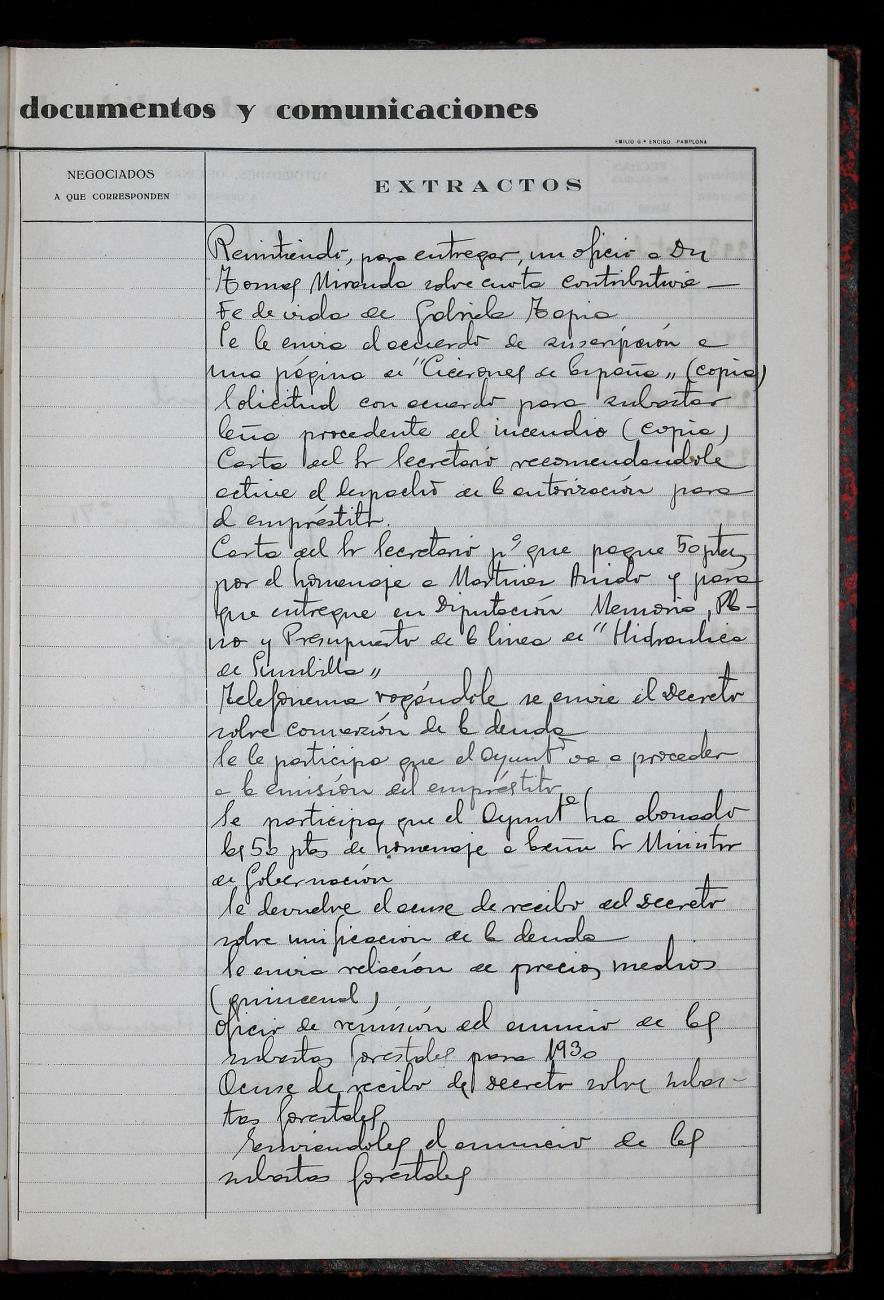 documentos y comunicaciones
EMILIO G.ª ENCISO. PAMPLONA
NEGOCIADOS
A QUE CORRESPONDEN
EXTRACTOS
Remitiendo, para entregar, un oficio a Dn
Tomas Miranda sobre cuota contributiva —
Fe de vida de Gabriela Tapia
Se le envia el acuerdo de suscripción a
una página de "Cicerones de España" (copia)
Solicitud con acuerdo para subastar
leña procedente del incendio (copia)
Carta del Sr Secretario recomendandole
active el despacho de la autorización para
el empréstito.
Carta del Sr Secretario pª que pague 50 ptas
por el homenaje a Martinez Anido y para
que entregue en Diputación Memoria, Pla-
no y Presupuesto de la linea de "Hidraulica
de Sumbilla"
Telefonema rogándole se envie el Decreto
sobre conversión de la deuda
Se le participa que el Ayuntº va a proceder
a la emisión del empréstito
Se participa que el Ayuntº ha abonado
las 50 ptas de homenaje a Excmo Sr Ministro
de Gobernación
Se devuelve el acuse de recibo del Decreto
sobre unificacion de la deuda
Se envia relación de precios medios
(quincenal)
Oficio de remisión del anuncio de las
subastas forestales para 1930
Acuse de recibo del Decreto sobre subas-
tas forestales
Enviandoles el anuncio de las
subastas forestales